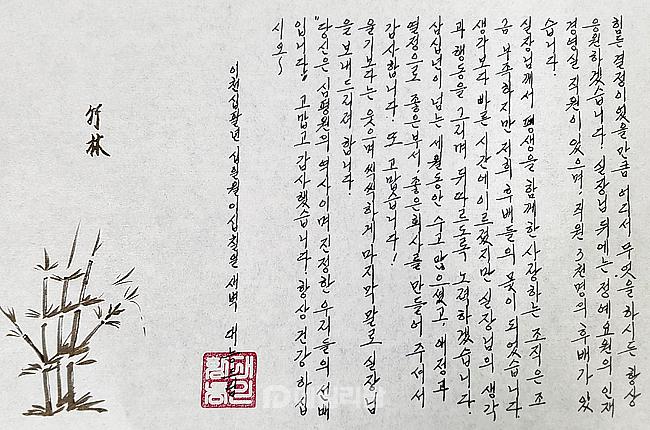 힘든 결정이었을만큼 어디서 무엇을 하시든 항상
응원하겠습니다. 실장님 뒤에는 정예요원의 인재
경영실 직원이 있으며, 직원 3천명의 후배가 있
습니다.
실장님께서 평생을 함께한 사랑하는 조직은 조
금 부족하지만 저희 후배들의 몫이 되었습니다.
생각보다 빠른 시간에 이르렀지만 실장님의 생각
과 행동을 그리며 뒤따르도록 노력하겠습니다.
삼십년이 넘는 세월동안 수고 많으셨고, 애정과
열정으로 좋은부서, 좋은회사를 만들어 주셔서
감사합니다. 또 고맙습니다!
울기보다는 웃으며 씩씩하게 마지막 말로 실장님
을 보내드리려 합니다.
"당신은 심평원의 역사이며 진정한 우리들의 선배
입니다." 고맙고 감사했습니다. 항상 건강하십
시오~
이천십팔년 이십칠일 새벽
竹林